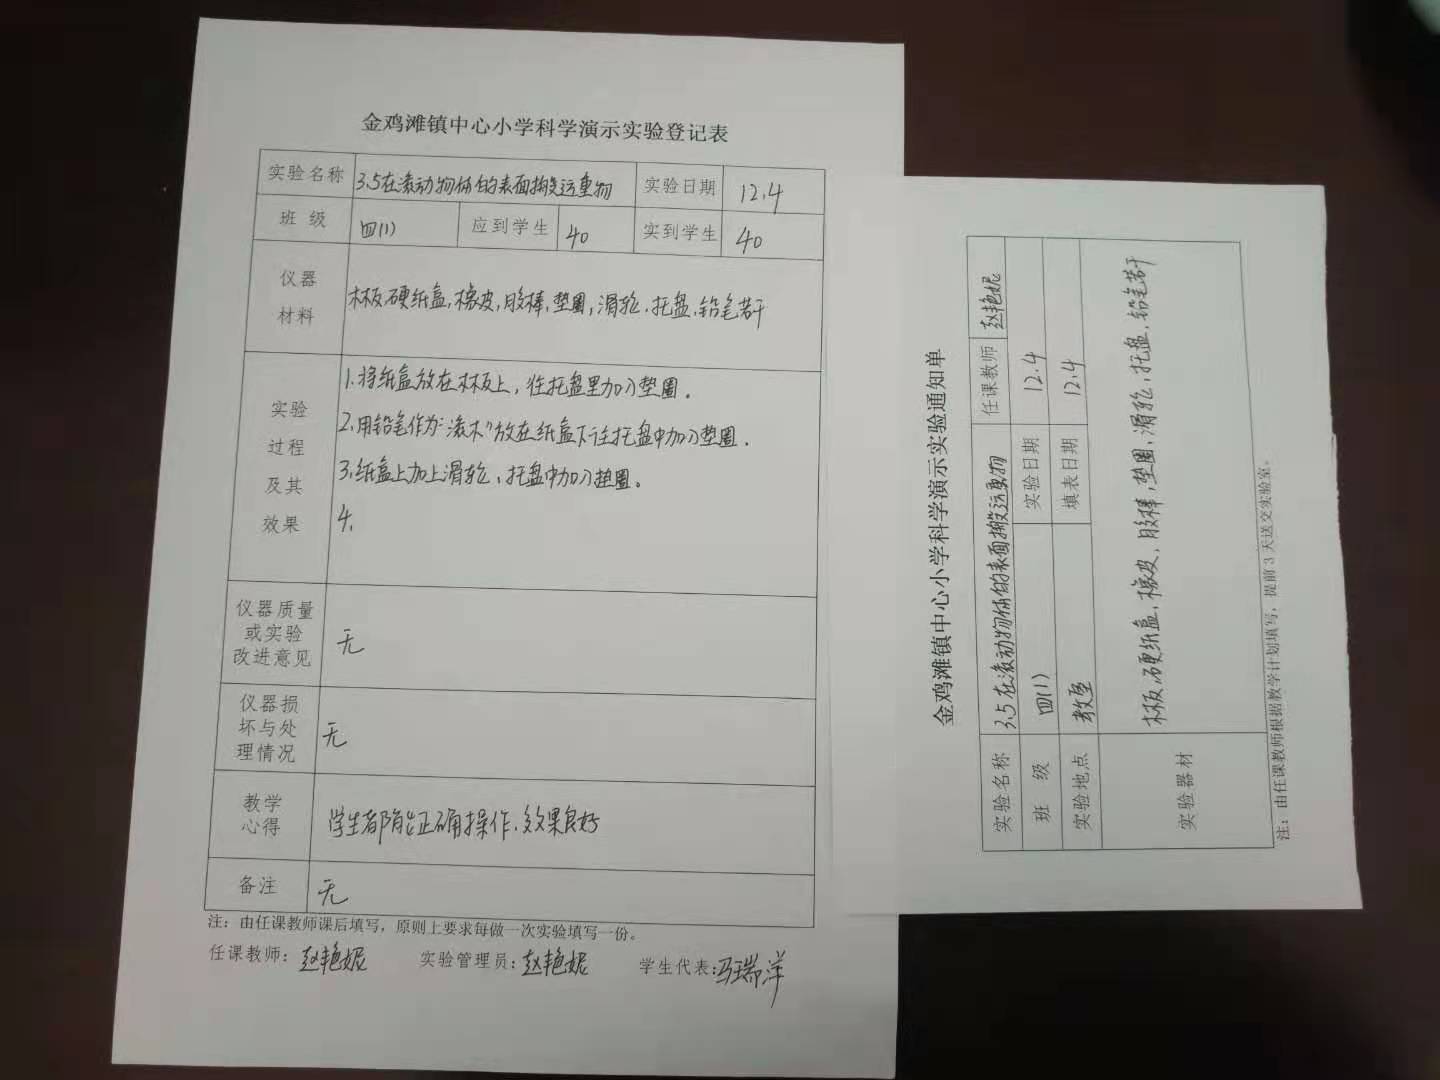 金鸡滩镇中心小学科学演示实验登记表
实验名称 3.5在滚动物体的表面搬运重物 实验日期 12.4
班 级 四(1) 应到学生 40 实到学生 40
仪器
材料
木板,硬纸盒,橡皮,胶棒,垫圈,滑轮,托盘,铅笔若干
实验
过程
及其
效果
1.将纸盒放在木板上,往托盘里加入垫圈。
2.用铅笔作为“滚木”放在纸盒下往托盘中加入垫圈.
3.纸盒上加上滑轮、托盘中加入垫圈。
4.
仪器质量
或实验
改进意见
无
仪器损
坏与处
理情况
无
教学
心得
学生都能正确操作,效果良好
备注 无
注：由任课教师课后填写，原则上要求每做一次实验填写一份。
任课教师：赵艳妮 实验管理员：赵艳妮 学生代表：马瑞洋
金鸡滩镇中心小学科学演示实验通知单
实验名称 3.5在滚动物体的表面搬运重物 任课教师 赵艳妮
班 级 四(1) 实验日期 12.4
实验地点 教室 填表日期 12.4
实验器材 木板,硬纸盒,橡皮,胶棒,垫圈,滑轮,托盘,铅笔若干
注：由任课教师根据教学计划填写，提前3天送交实验室。